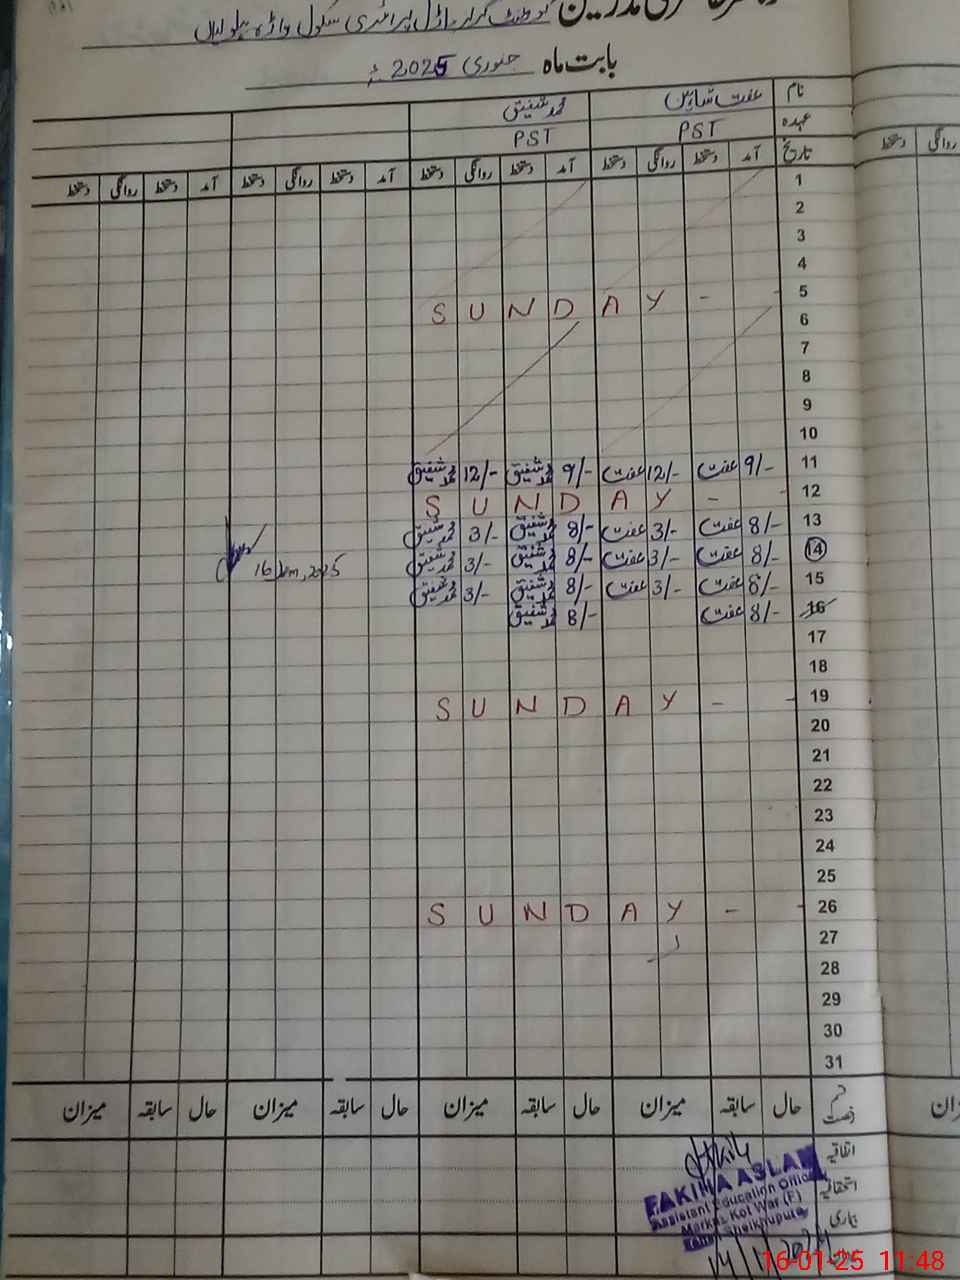 گورنمنٹ گرلز ماڈل پرائمری سکول واڑہ
بابت ماہ جنوری 2025ء
نام عفت شاہین محمد شفیق
عہدہ PST PST
تاریخ آمد دستخط روانگی دستخط آمد دستخط روانگی دستخط آمد دستخط روانگی دستخط آمد دستخط روانگی دستخط
روانگی دستخط
1
2
3
4
5 SUNDAY -
6
7
8
9
10
11 9/- عفت 12/- عفت 9/- محمد شفیق 12/- محمد شفیق
12 SUNDAY -
13 8/- عفت 3/- عفت 8/- محمد شفیق 3/- محمد شفیق
14 8/- عفت 3/- عفت 8/- محمد شفیق 3/- محمد شفیق
16 Jan, 2025
15 8/- عفت 3/- عفت 8/- محمد شفیق 3/- محمد شفیق
16 8/- عفت 8/- محمد شفیق
17
18
19 SUNDAY -
20
21
22
23
24
25
26 SUNDAY -
27
28
29
30
31
قسم رخصت حال سابقہ میزان حال سابقہ میزان حال سابقہ میزان حال سابقہ میزان
اتفاقیہ
استحقاقیہ
بیماری
FAKIHA ASLAM
Assistant Education Officer
Markaz Kot War (F)
Tehsil Sheikhupura
16-01-25 11:48